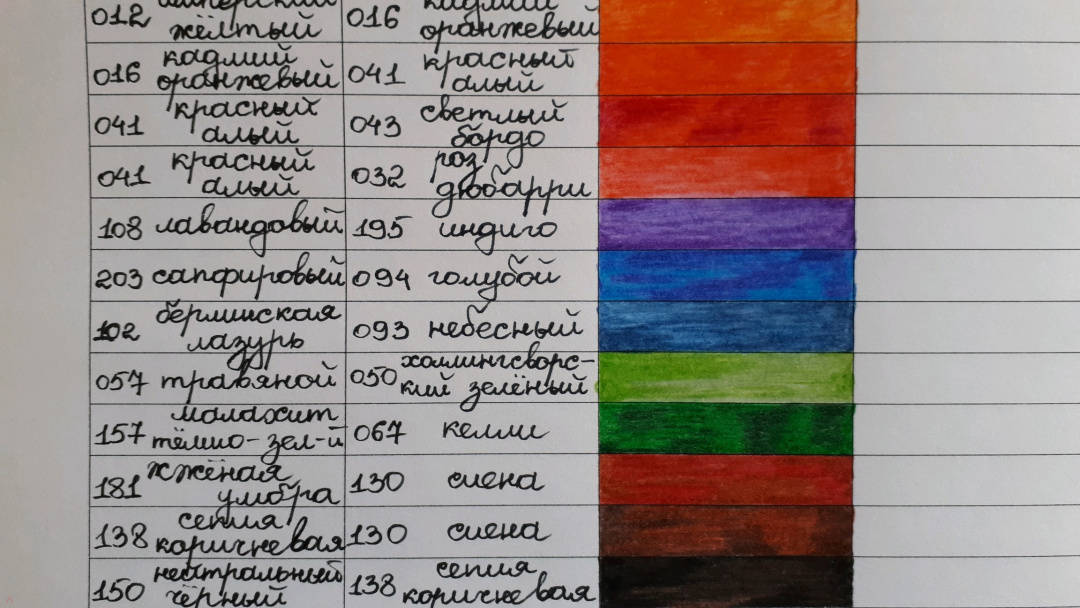 012 имперский жёлтый 016 кадмий оранжевый
016 кадмий оранжевый 041 красный алый
041 красный алый 043 светлый бордо
041 красный алый 032 роз дюбарри
108 лавандовый 195 индиго
203 сапфировый 094 голубой
102 берлинская лазурь 093 небесный
057 травяной 050 холлингсворс-кий зелёный
157 малахит тёмно-зел-й 067 келли
181 жжёная умбра 130 сиена
138 сепия коричневая 130 сиена
150 нейтральный чёрный 138 сепия коричневая